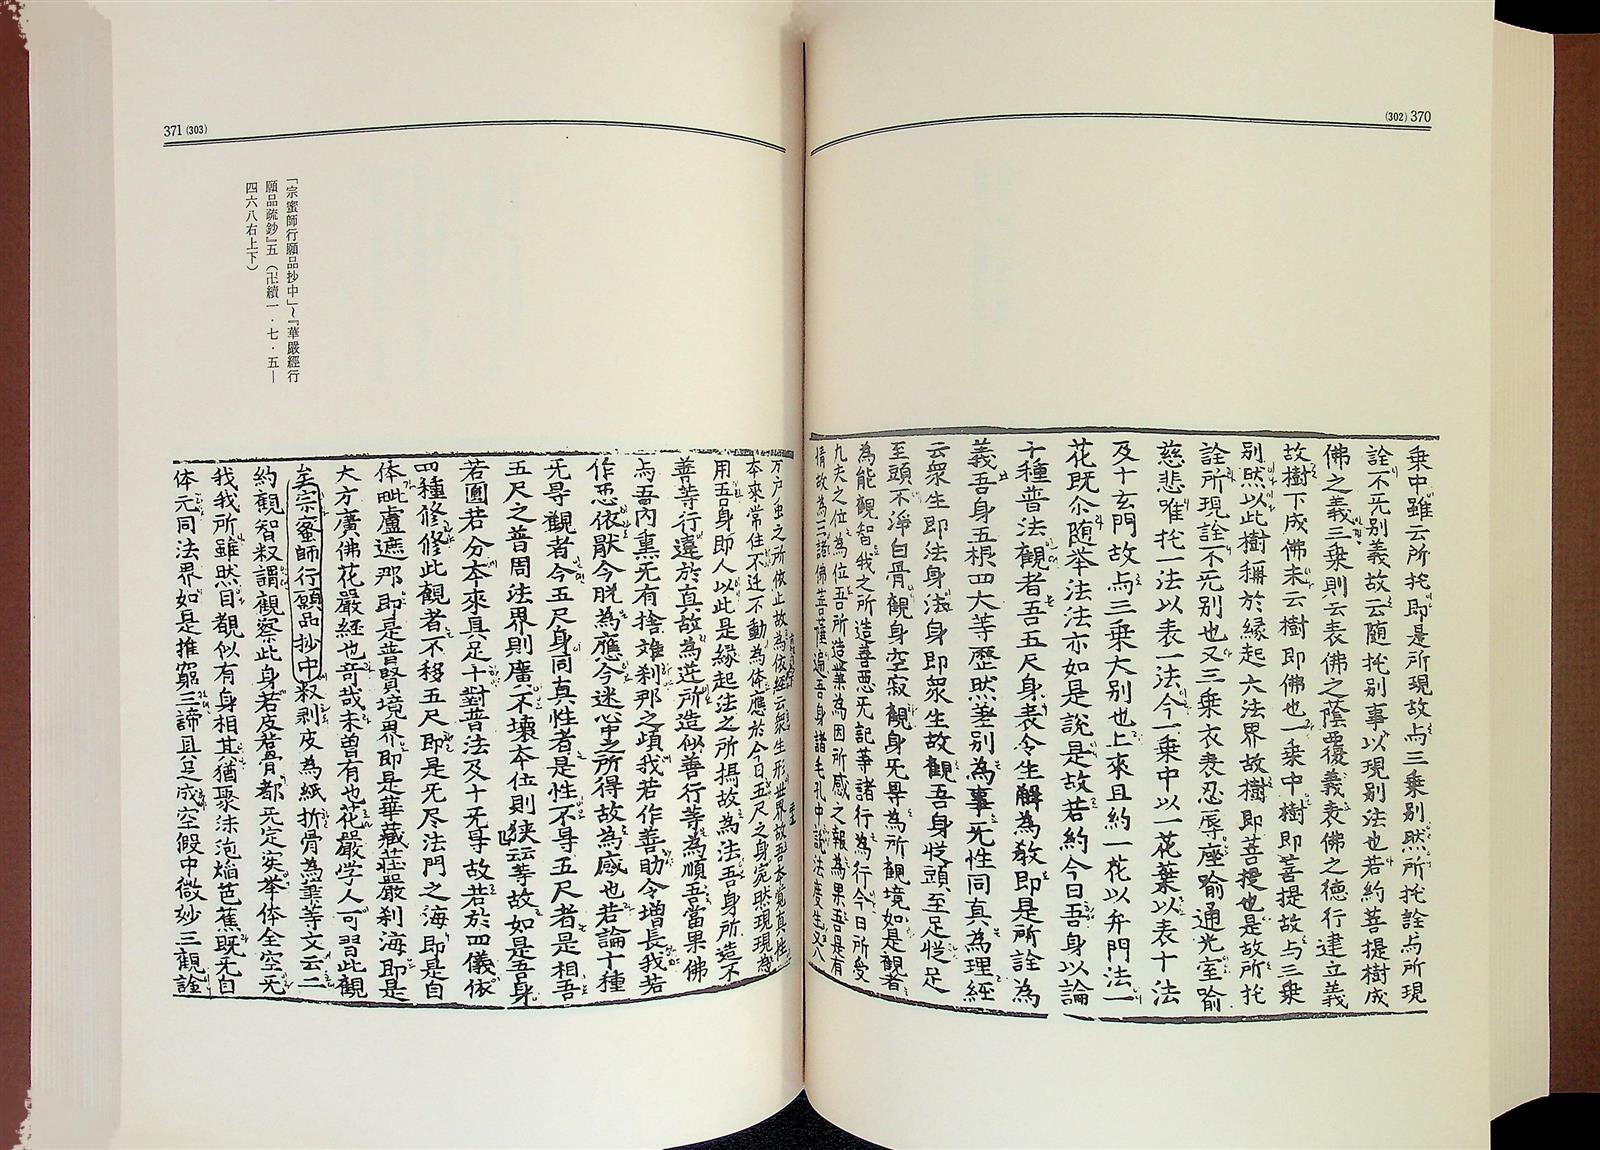 (302) 370
乗中雖云所托即是所現故与三乗別然所托詮与所現
詮不旡別義故云随托別事以現別法也若約菩提樹成
佛之義三乗則云表佛之蔭覆義表佛之德行建立義
故樹下成佛未云樹即佛也一乗中樹即菩提故与三乗
別然以此樹稱於縁起六法界故樹即菩提也是故所托
詮所現詮不旡別也又三乗衣表忍辱座喻通光室喻
慈悲唯托一法以表一法今一乗中以一花葉以表十法
及十玄門故与三乗大別也上來且約一花以弁門法一
花既尒随举法法亦如是說是故若約今日吾身以論
十種普法觀者吾五尺身表令生解為教即是所詮為
義吾身五根四大等歴然差別為事旡性同真為理經
云衆生即法身法身即衆生故觀吾身従頭至足従足
至頭不淨白骨觀身空寂觀身旡㝵為所觀境如是觀者
為能觀智我之所造善悪旡記等諸行為行今日所受
九夫之位為位吾所造業為因所感之報為果吾是有
情故為三諸佛菩薩遍吾身諸毛孔中說法度生又八
371 (303)
「宗蜜師行願品抄中」~『華嚴經行
願品疏鈔』五（卍續一・七・五—
四六八右上下）
万户虫之所依止故為依經云衆生形世界故吾本覚真性
本來常住不迁不動為体應於今日五尺之身宛然現現為
用吾身即人以此是縁起法之所攝故為法吾身所造不
善等行違於真故為逆所造似善行等為順吾當果佛
与吾內熏旡有捨雉刹那之頃我若作善助令增長我若
作悪依厭今脱為應今迷心中之所得故為感也若論十種
旡㝵觀者今五尺身同真性者是性不㝵五尺者是相吾
五尺之普周法界則廣不壞本位則狭云云等故如是吾身
若圓若分本來具足十對普法及十旡㝵故若於四儀依
四種修修此觀者不移五尺即是旡尽法門之海即是自
体毗盧遮那即是普賢境界即是華藏莊嚴刹海即是
大方廣佛花嚴経也奇哉未曽有也花嚴学人可習此觀
矣宗蜜師行願品抄中釈剥皮為紙折骨為筆等文云二
約觀智釈謂觀察此身若皮若骨都旡定実举体全空旡
我我所雖然目覩似有身相其猶聚沫泡焔芭蕉既旡自
体元同法界如是推窮三諦具足成空假中微妙三觀詮